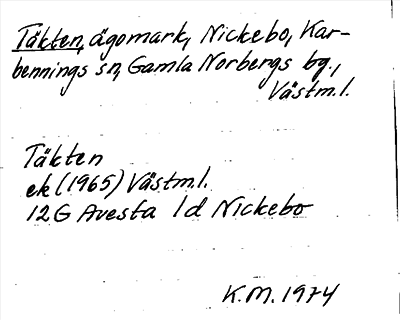 Täkten, ägomark, Nickebo, Kar-
bennings sn, Gamla Norbergs bg.,
Västm.l.
Täkten
ek (1965) Västm.l.
12G Avesta 1d Nickebo
K.M. 1974